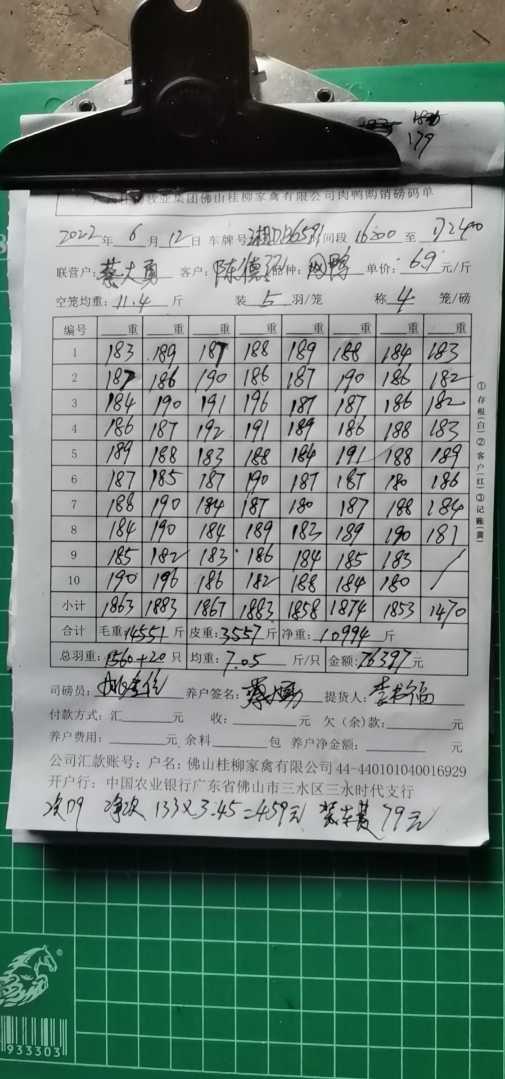 179
牧业集团佛山桂柳家禽有限公司肉鸭购销磅码单
2022年 6 月 12 日 车牌号 间段 16:00 至
联营户: 蔡大勇 客户: 陈德 种: 肉鸭 单价: 6.9 元/斤
空笼均重: 11.4 斤 装 5 羽/笼 称 4 笼/磅
编号 重 重 重 重 重 重 重 重
1 183 189 187 188 189 188 184 183
2 187 186 190 186 187 190 186 182
3 184 190 191 196 187 187 186 182
4 186 187 192 191 189 186 188 183
5 189 188 183 188 184 191 188 189
6 187 185 187 190 187 187 180 186
7 188 190 184 187 180 187 188 184
8 184 190 184 189 182 189 190 181
9 185 182 183 186 184 185 183 /
10 190 196 186 182 188 184 180 /
小计 1863 1883 1867 1883 1858 1874 1853 1470
合计 毛重: 14551 斤 皮重: 3557 斤 净重: 10994 斤
总羽重: 1560+20 只 均重: 7.05 斤/只 金额: 76397 元
司磅员: 养户签名: 蔡大勇 提货人: 李 福
付款方式: 汇 元 收: 元 欠(余)款: 元
养户费用: 元 余料 包 养户净金额: 元
公司汇款账号: 户名: 佛山桂柳家禽有限公司 44-440101040016929
开户行: 中国农业银行广东省佛山市三水区三水时代支行
133×3.45=459元 装车费 79元
①存根(白)②客户(红)③记账(黄)
933303